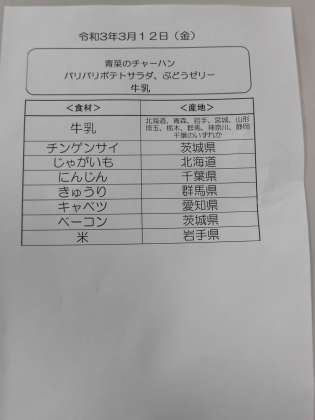 令和3年3月12日（金）
青菜のチャーハン
パリパリポテトサラダ、ぶどうゼリー
牛乳
＜食材＞ ＜産地＞
牛乳 北海道、青森、岩手、宮城、山形
埼玉、栃木、群馬、神奈川、静岡
千葉のいずれか
チンゲンサイ 茨城県
じゃがいも 北海道
にんじん 千葉県
きゅうり 群馬県
キャベツ 愛知県
ベーコン 茨城県
米 岩手県